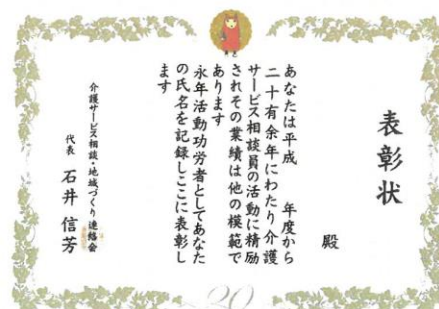 表彰状
殿
あなたは平成 年度から
二十有余年にわたり介護
サービス相談員の活動に精励
されその業績は他の模範で
あります
永年活動功労者としてあなた
の氏名を記録しここに表彰し
ます
介護サービス相談・地域づくり連絡会
代表 石井信芳
20